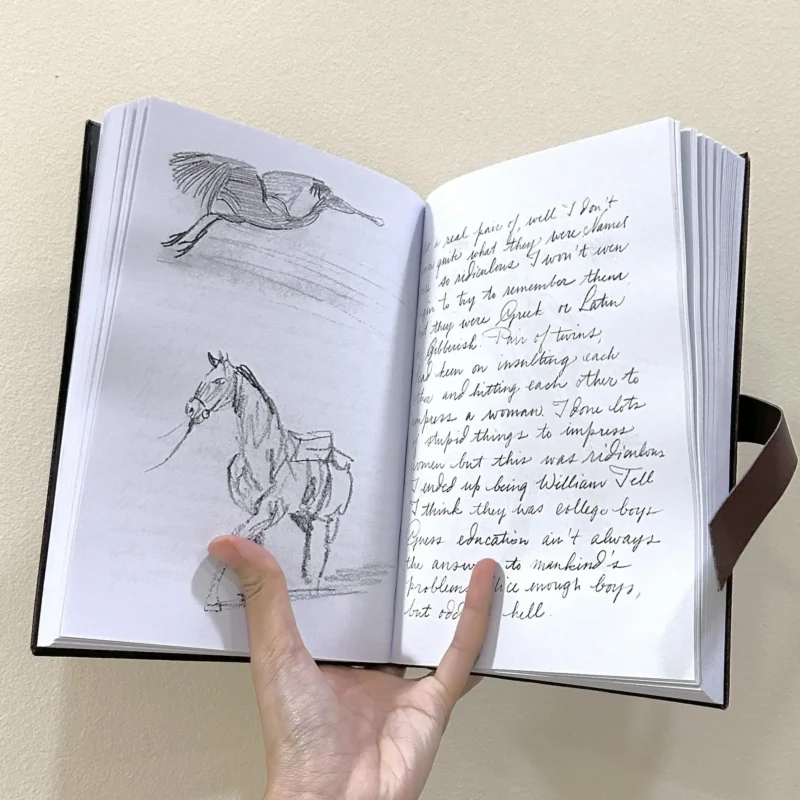 a real pair of, well I don't
quite what they were Names
so ridiculous I won't even
to try to remember them
they were Greek or Latin
Gibberish Pair of twins,
keen on insulting each
and hitting each other to
impress a woman. I done lots
stupid things to impress
women but this was ridiculous
I ended up being William Tell
I think they was college boys
Guess education ain't always
the answer to mankind's
problems. Nice enough boys,
but odd hell.